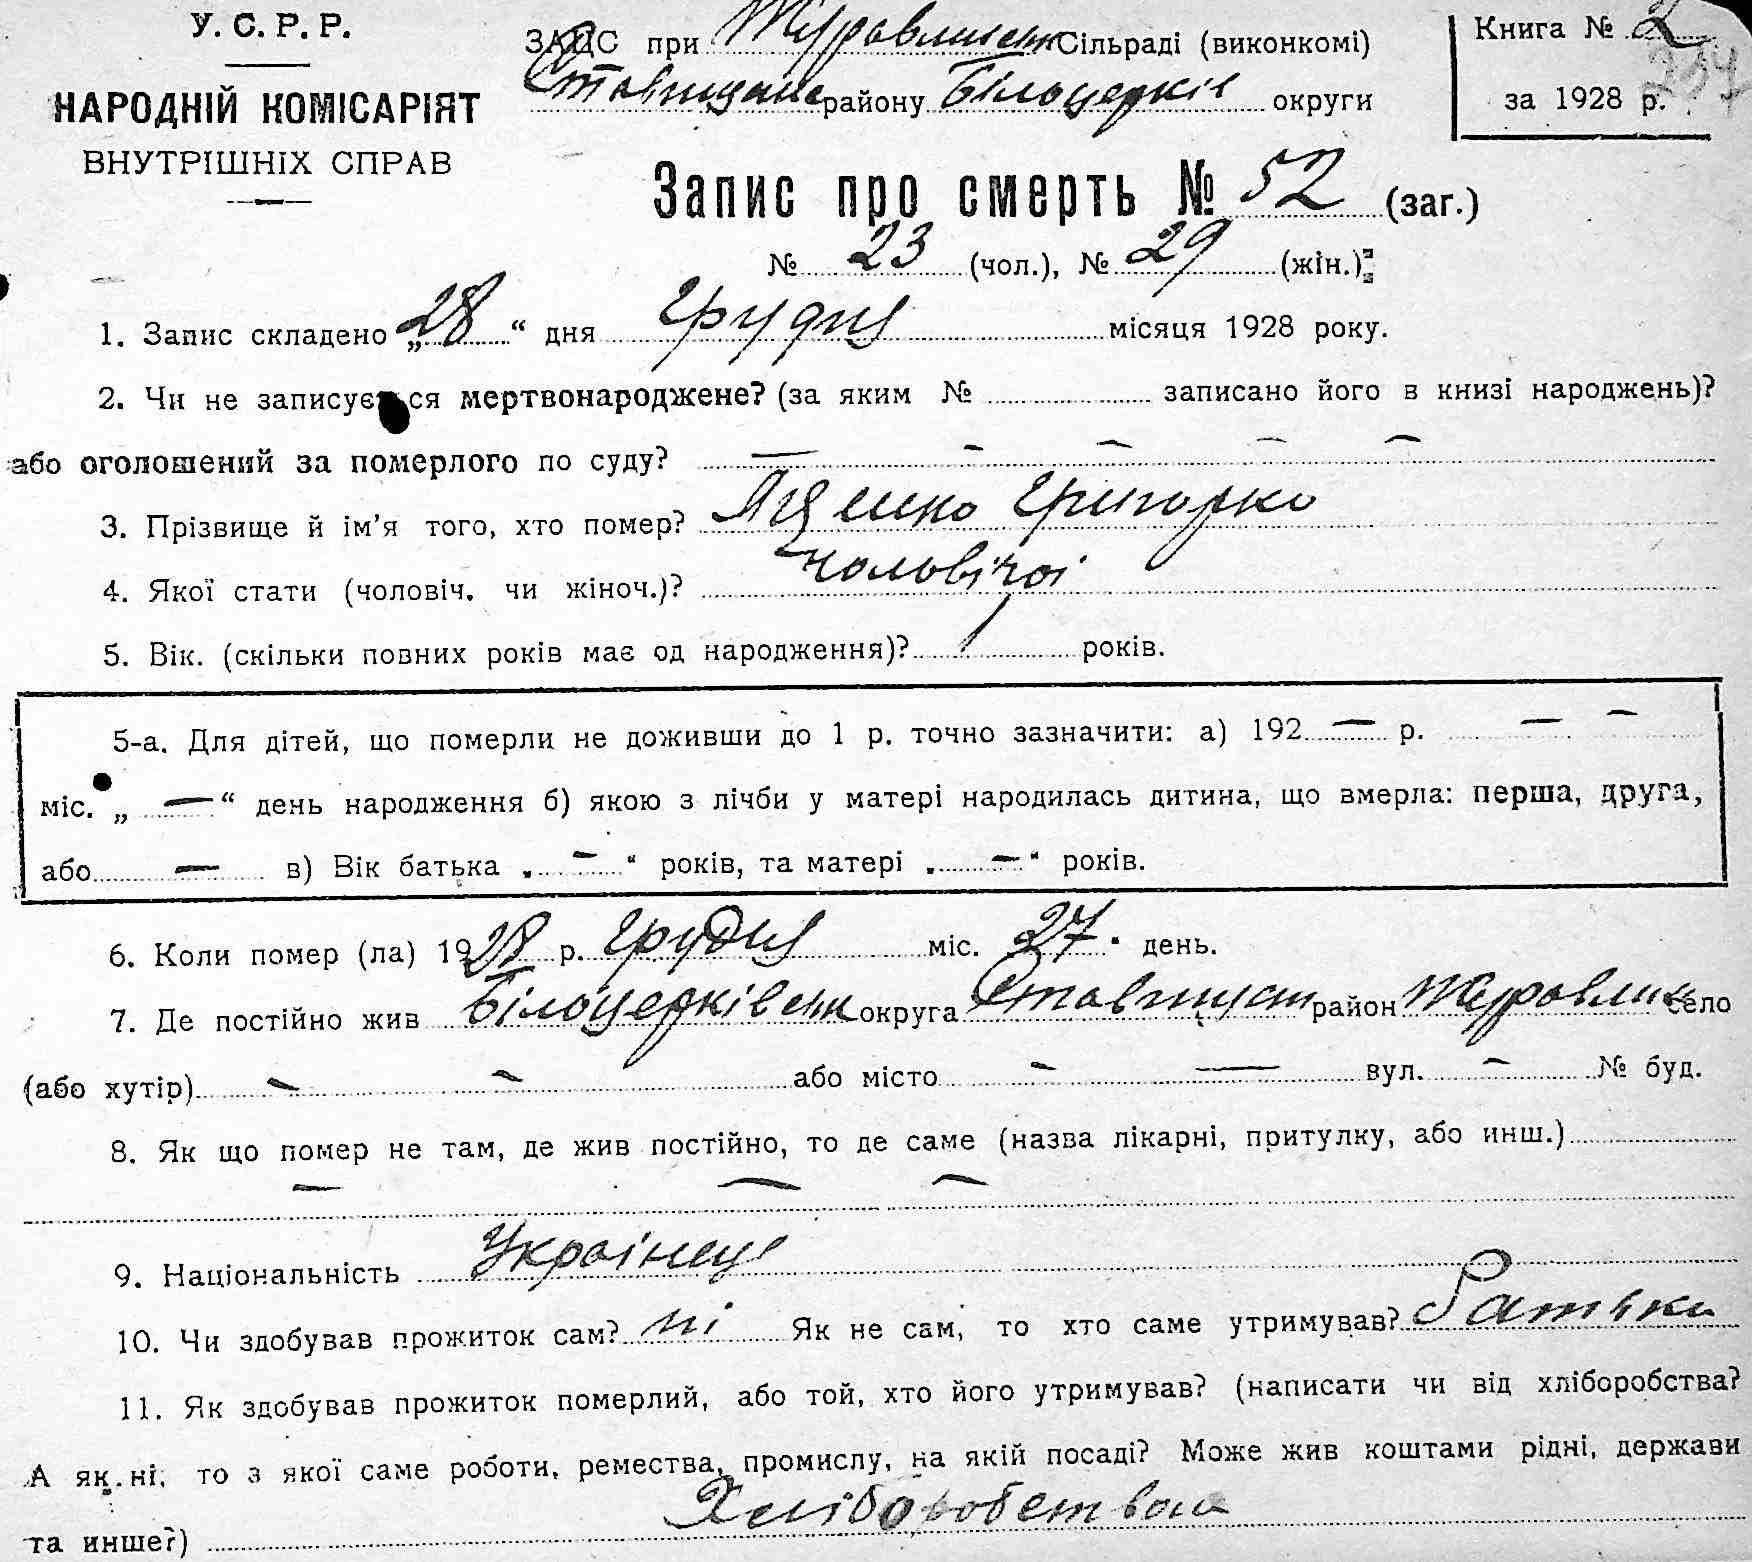 У. С. Р. Р.
НАРОДНІЙ КОМІСАРІЯТ
ВНУТРІШНІХ СПРАВ
ЗАГС при Журавлиськ Сільраді (виконкомі)
Ставищанс району Білоцерків округи
Книга № 2
за 1928 р.
Запис про смерть № 52 (заг.)
№ 23 (чол.), № 29 (жін.)
1. Запис складено „28“ дня Грудня місяця 1928 року.
2. Чи не записується мертвонароджене? (за яким № записано його в книзі народжень)?
або оголошений за померлого по суду? — — — — —
3. Прізвище й ім’я того, хто помер? Григорко
4. Якої стати (чоловіч. чи жіноч.)? чоловічоі
5. Вік. (скільки повних років має од народження)? 1 років.
5-а. Для дітей, що померли не доживши до 1 р. точно зазначити: а) 192 — р. — —
міс. „ — “ день народження б) якою з лічби у матері народилась дитина, що вмерла: перша, друга,
або — в) Вік батька „ — “ років, та матері „ — “ років.
6. Коли помер (ла) 1928 р. Грудня міс. 27 день.
7. Де постійно жив Білоцерківськ округа Ставищуст район Журавлиси село
(або хутір) — — або місто — — вул. — № буд.
8. Як що помер не там, де жив постійно, то де саме (назва лікарні, притулку, або инш.)
— — —
9. Національність Украінець
10. Чи здобував прожиток сам? ні Як не сам, то хто саме утримував? Батьки
11. Як здобував прожиток померлий, або той, хто його утримував? (написати чи від хліборобства?
А як ні, то з якої саме роботи, ремества, промислу, на якій посаді? Може жив коштами рідні, держави
та инше?) Хліборобством